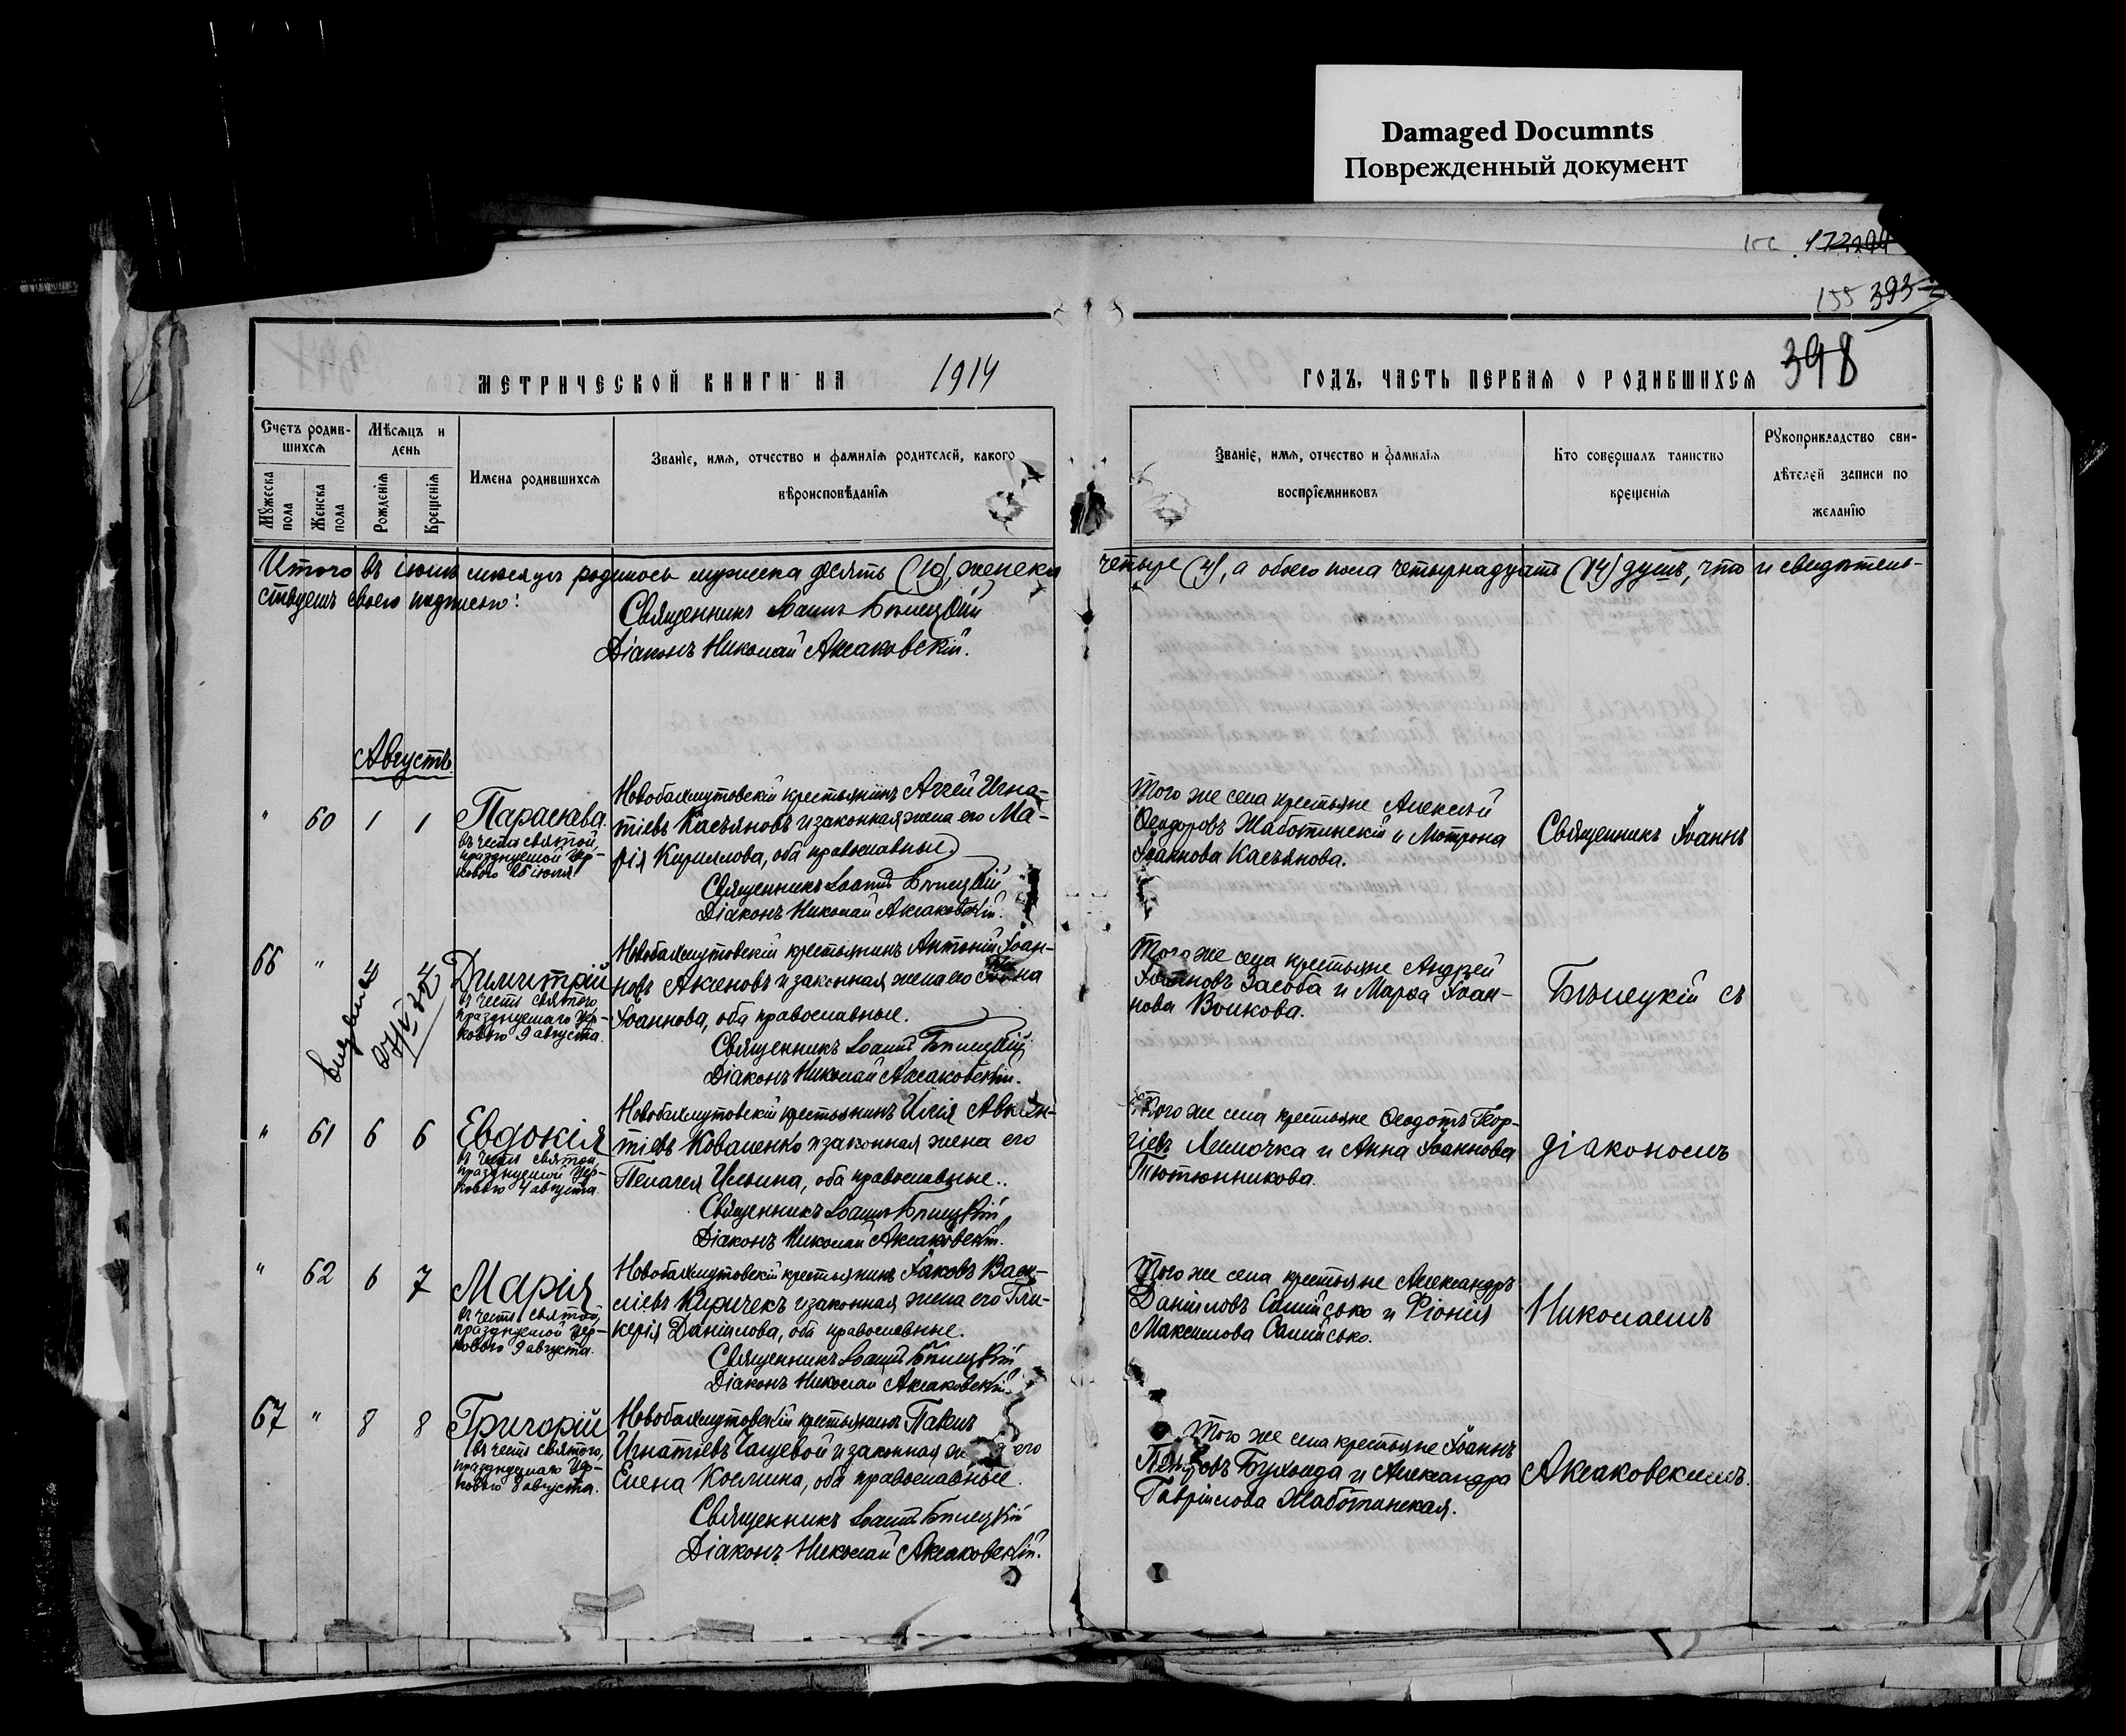 Damaged Documnts
Поврежденный документ
155 393
398
МЕТРИЧЕСКОЙ КНИГИ НА 1914 ГОДЪ, ЧАСТЬ ПЕРВАЯ О РОДИВШИХСЯ
Счетъ родив-
шихся
Мужеска пола
Женска пола
Мѣсяцъ и
день
Рожденія
Крещенія
Имена родившихся
Званіе, имя, отчество и фамилія родителей, какого
вѣроисповѣданія
Званіе, имя, отчество и фамилія
воспріемниковъ
Кто совершалъ таинство
крещенія
Рукоприкладство сви-
дѣтелей записи по
желанію
Итого въ іюлѣ мѣсяцѣ родилось мужска десять (10), женска четыре (4), а обоего пола четырнадцать (14) душъ, что и свидѣтель-
ствуемъ своею подписью:
Священникъ Іоаннъ Бѣлецкій
Діаконъ Николай Аксаковскій.
Августъ
" 60 1 1
Параскева.
въ честь святой,
празднуемой Цер-
ковью 26 іюля.
Новобахмутовскій крестьянинъ Аггей Игна-
тіевъ Касьяновъ и законная жена его Ма-
рія Кириллова, оба православные
Священникъ Іоаннъ Бѣлецкій
Діаконъ Николай Аксаковскій.
Того же села крестьяне Алексѣй
Ѳеодоровъ Жаботинскій и Мотрона
Іоаннова Касьянова.
Священникъ Іоаннъ
66 " 4 4
Димитрій
въ честь святого,
празднуемаго Цер-
ковью 9 августа.
Новобахмутовскій крестьянинъ Антоній Іоан-
новъ Аксеновъ и законная жена его
Іоаннова, оба православные.
Священникъ Іоаннъ Бѣлецкій
Діаконъ Николай Аксаковскій.
Того же села крестьяне Андрей
Іоанновъ Засоба и Марѳа Іоан-
нова Волкова.
Бѣлецкій съ
" 61 6 6
Евдокія
въ честь святой,
празднуемой Цер-
ковью 4 августа.
Новобахмутовскій крестьянинъ Илія Авксен-
тіевъ Коваленко и законная жена его
Пелагея Ильина, оба православные..
Священникъ Іоаннъ Бѣлецкій
Діаконъ Николай Аксаковскій.
Того же села крестьяне Ѳеодотъ Геор-
гіевъ Лимочка и Анна Іоаннова
Тютюнникова.
діакономъ
" 62 6 7
Марія
въ честь святой,
празднуемой Цер-
ковью 9 августа.
Новобахмутовскій крестьянинъ Іаковъ Васи-
ліевъ Киричекъ и законная жена его Гли-
керія Даніилова, оба православные.
Священникъ Іоаннъ Бѣлецкій
Діаконъ Николай Аксаковскій.
Того же села крестьяне Александръ
Даніиловъ Самійсько и
Максимова Самійсько.
Николаемъ
67 " 8 8
Григорій
въ честь святого,
празднуемаго Цер-
ковью 8 августа.
Новобахмутовскій крестьянинъ Павелъ
Игнатіевъ Чащевой и законная его
Елена Космина, оба православные.
Священникъ Іоаннъ Бѣлецкій
Діаконъ Николай Аксаковскій.
Того же села крестьяне Іоаннъ
и Александра
Гавріилова Жаботинская.
Аксаковскимъ.